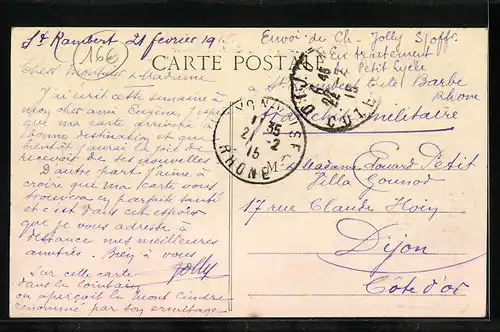 St Rambert 21 fevrier 1915
166
CARTE POSTALE
Envoi de Ch. Jolly S/off.
En traitement
Petit Lycée
à St Rambert l'Ile Barbe
Rhône
Franchise militaire
LYON-VAISE
11 35
21-2
15
RHONE
DIJON
COTE D'OR
Cher Monsieur & Madame
J'ai écrit cette semaine à
mon cher ami Eugène, j'espère
que ma carte arrivera à
bonne destination et que
bientôt j'aurai la joie de
recevoir de ses nouvelles
D'autre part j'aime à
croire que ma carte vous
trouvera en parfaite santé
et c'est dans cet espoir
que je vous adresse à
distance mes meilleures
amitiés. Bien à vous
Jolly
Sur cette carte
dans le lointain
on aperçoit le mont Cindre
renommé par son ermitage
Madame Edouard Petit
Villa Gounod
17 rue Claude Hoin
Dijon
Côte d'or